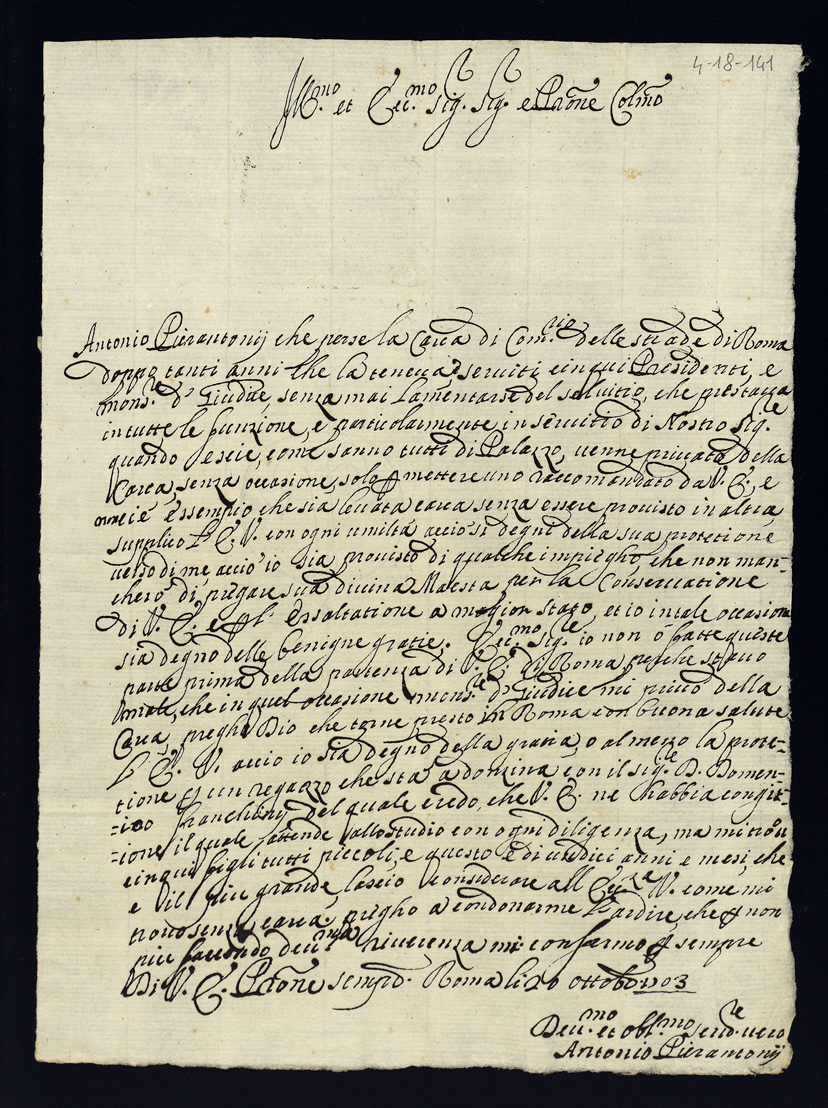 4-18-141
Ill.mo et Ecc.mo sig. sig. e Prōne Colmo
Antonio Pierantonij che perse la Carca di Com.rio delle strade di Roma
doppo tanti anni che la teneva serviti cinqui Presidenti, e
mons.re d' Giudice, senza mai lamentarse del servitio, che prestava
in tutte le funzione, e particolarmente in servitio di Nostro Sig.re
quando escie, come sanno tutti di Palazzo, venne privato della
Carca, senza occasione, solo p mettere uno raccomandato da V. E., e
non cie essempio che sia levata carca senza essere provisto in altra
supplico l' E. V. con ogni umiltà acciò si degni della sua protetione
verso di me acciò io sia provisto di qualche impiegho, che non man-
cherò di pregare sua divina Maestà per la Conservatione
di V. E. e p l' essaltatione a magior stato, et io in tale occasione
sia degno delle benigne gratie. Ecc.mo sig.re io non ò fatte queste
parte prima della partenza di V. E. di Roma perche stavo
male, che in quel occasione mons.re d' Giudice mi privò della
Carca, pregho Dio che torne presto in Roma con buona salute
l' E. V. acciò io sia degno della gratia, o al meno la prote-
tione es un regazzo che sta a dozzina con il sig.re D. Domen-
=ico Franchini del quale credo, che V. E. ne habbia cognit-
=ione il quale attende allo studio con ogni diligenza, ma mi trovo
cinqui figli tutti piccoli, e questo è di undici anni e mesi, che
e il più grande, lascio considerare all' Ecc.za V. come mi
trovo senza carca, pregho a condonarme l' ardire, che p non
più facendo dev.ma riverenza mi confermo p sempre
Di V. E. Prōne semp. Roma li 20 ottob. 1703
Dev.mo et obl.mo serv.re vero
Antonio Pierantonij